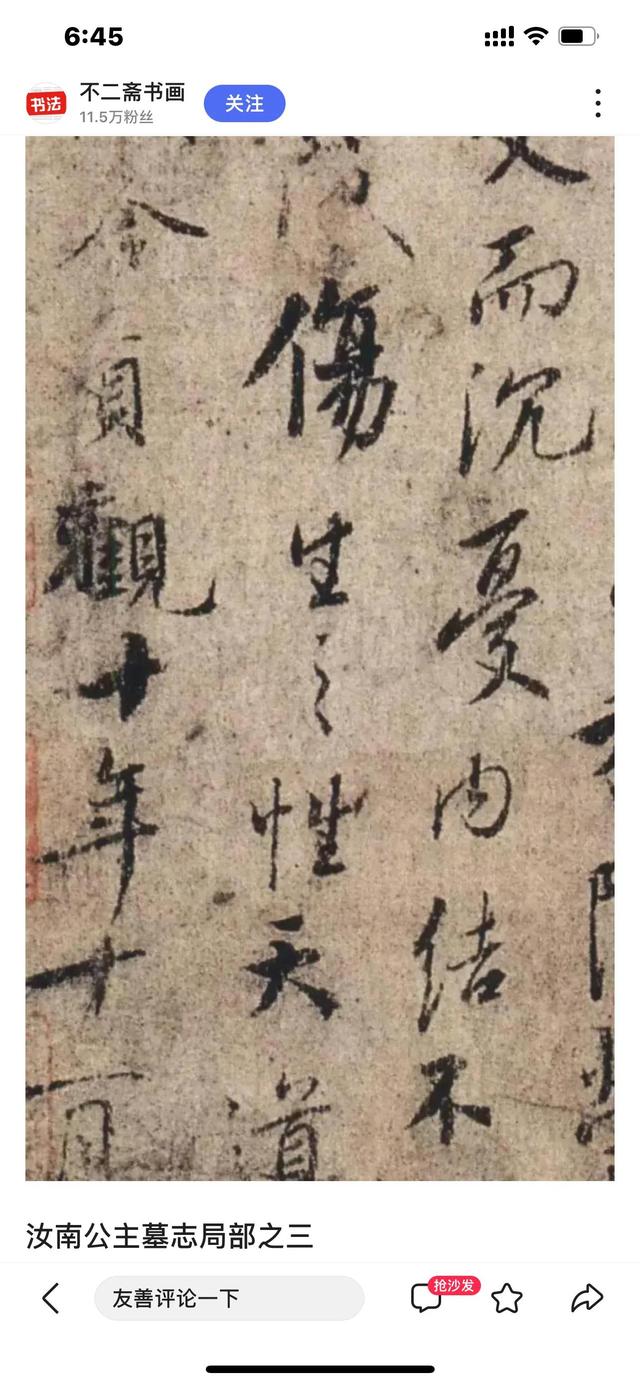 6:45
书法
不二斋书画
11.5万粉丝
关注
而沉憂内结不
傷生之性天道
今貞觀十年十
汝南公主墓志局部之三
友善评论一下
抢沙发